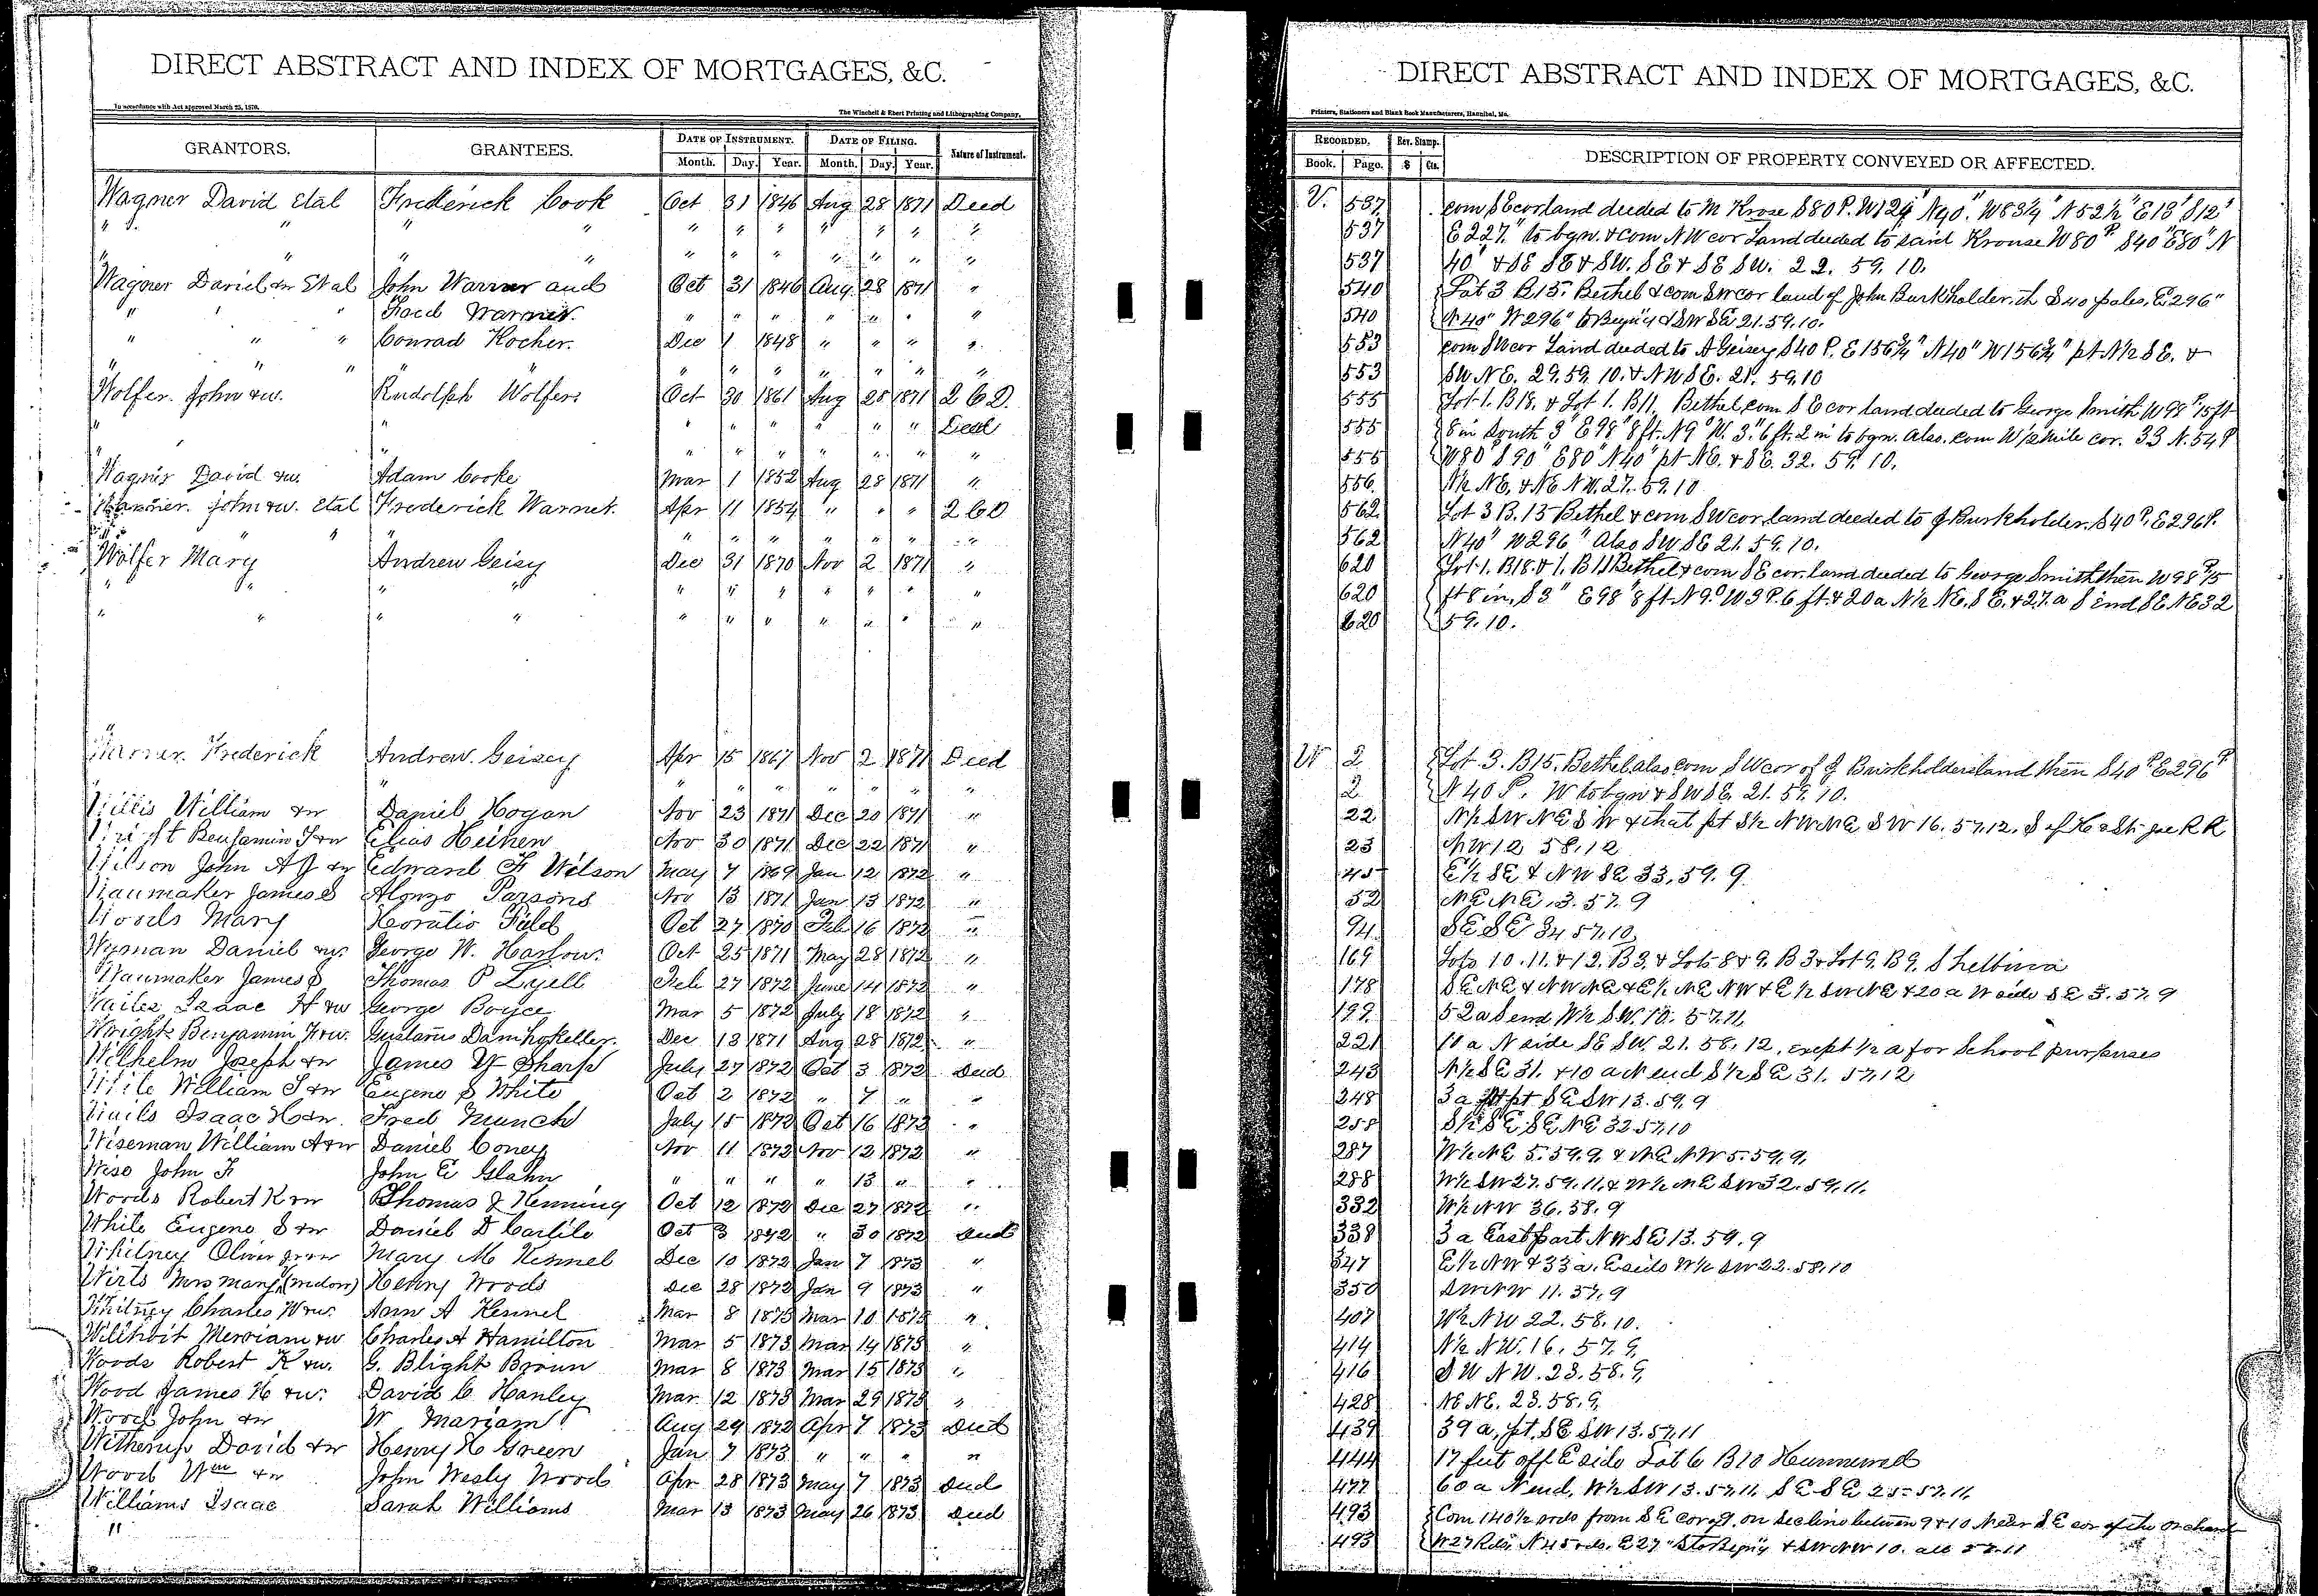 DIRECT ABSTRACT AND INDEX OF MORTGAGES, &C.
In accordance with Act approved March 25, 1870.
The Winchell & Ebert Printing and Lithographing Company,
GRANTORS. GRANTEES. DATE OF INSTRUMENT. DATE OF FILING. Nature of Instrument.
Month. Day. Year. Month. Day. Year.
Wagner David Etal Frederick Cook Oct 31 1846 Aug 28 1871 Deed
" " " " " " " " " " "
" " " " " " " " " " "
Wagner David &w Etal John Warner and Oct 31 1846 Aug 28 1871 "
" " " Fred Warner " " " " " " "
" " " Conrad Kocher. Dec 1 1848 " " " "
" " " " " " " " " "
Wolfer John &w. Rudolph Wolfers Oct 30 1861 Aug 28 1871 2 C D.
" " " " " " " Deed
" " " " " " " "
Wagner David &w. Adam Cooke Mar 1 1852 Aug 28 1871 "
Warner. John &w. Etal Frederick Warner. Apr 11 1854 " " " 2 C D
" " " " " " " " "
Wolfer Mary Andrew Geisy Dec 31 1870 Nov 2 1871 "
" " " " " " " " " " "
" " " " " " " " " " "
Warner. Frederick Andrew. Geisey Apr 15 1867 Nov 2 1871 Deed
" " " " " " " " "
Willis William &w Daniel Hogan Nov 23 1871 Dec 20 1871 "
Wright Benjamin F &w Elias Heinen Nov 30 1871 Dec 22 1871 "
Wilson John A J &w Edward F Wilson May 7 1869 Jan 12 1872 "
Waumaker James S Alonzo Parsons Nov 13 1871 Jan 13 1872 "
Woods Mary Horatio Field Oct 27 1870 Feb 16 1872 "
Wyman Daniel &w. George W. Harlow. Oct 25 1871 May 28 1872 "
Waumaker James S Thomas P Lyell Feb 27 1872 June 14 1872 "
Wailes Isaac H &w George Boyce Mar 5 1872 July 18 1872 "
Wright Benjamin F &w. Gustavus Damhokeller. Dec 13 1871 Aug 28 1872 "
Wilhelm Joseph &w James Y Sharp July 27 1872 Oct 3 1872 Deed
White William S &w Eugene S White Oct 2 1872 " 7 " "
Wails Isaac H &w. Fred Munch July 15 1872 Oct 16 1872 "
Wiseman William A &w Daniel Coney Nov 11 1872 Nov 12 1872 "
Wise John F John E Glahn " " " " 13 " "
Woods Robert K &w Thomas J Henning Oct 12 1872 Dec 27 1872 "
White Eugene S &w Daniel D Carlile Oct 3 1872 " 30 1872 Deed
Whitney Oliver jr &w Mary M Kennel Dec 10 1872 Jan 7 1873 "
Wirts Mrs Mary (widow) Henry Woods Dec 28 1872 Jan 9 1873 "
Whitney Charles W &w. Ann A Kennel Mar 8 1873 Mar 10 1873 "
Wilthoit Merriam &w Charles A Hamilton Mar 5 1873 Mar 14 1873 "
Woods Robert K &w. G. Blight Brown Mar 8 1873 Mar 15 1873 "
Wood James H &w. David C Hanley Mar 12 1873 Mar 29 1873 "
Wood John &w W Mariam Aug 29 1872 Apr 7 1873 Deed
Witherup David &w Henry H Green Jan 7 1873 " " " "
Wood Wm &w John Wesly Wood Apr 28 1873 May 7 1873 Deed
Williams Isaac Sarah Williams Mar 13 1873 May 26 1873 Deed
"
DIRECT ABSTRACT AND INDEX OF MORTGAGES, &C.
Printers, Stationers and Blank Book Manufacturers, Hannibal, Mo.
RECORDED. Rev. Stamp. DESCRIPTION OF PROPERTY CONVEYED OR AFFECTED.
Book. Page. $ Cts.
V. 537 com S E cor land deeded to M Krose S 80 P. W 124 " N 40". W 83¼ " N 52½ " E 13" S 12"
537 E 227." to bgn. & Com N W cor Land deeded to said Krouse W 80 P S 40 " E 80 " N
537 40 " & SE SE & SW. SE & SE SW. 22. 59. 10.
540 Lot 3 B 15. Bethel & com SW cor land of John Burkholder. th S 40 poles. E 296 "
540 N 40" W 296" to Beg'n'g & SW SE 21. 59. 10.
553 com SW cor Land deeded to A Geisey S 40 P. E 156¾ " N 40 " W 156¾ " pt N½ SE. &
553 SW NE. 29. 59. 10. & NW SE. 21. 59. 10
555 Lot 1. B 18. & Lot 1. B 11. Bethel com S E cor land deeded to George Smith W 98 P 15 ft
555 8 in South 3" E 98" 8 ft. N 9" W. 3." 6 ft. 2 in to bgn. Also. com W ½ mile cor. 33 N. 54 P
555 W 80 " S 90 " E 80 " N 40 " pt NE. & SE. 32. 59. 10.
556. N½ NE. & NE NW. 27. 59. 10
562 Lot 3 B. 15 Bethel & com SW cor land deeded to J Burkholder. S 40 P. E 296 P.
562 N 40" W 296 " Also SW SE 21. 59. 10.
620 Lot 1. B 18. & 1. B 11 Bethel & com SE cor. land deeded to George Smith then W 98 P 15
620 ft 8 in, S 3 " E 98 " 8 ft. N 9." W 3 P. 6 ft. & 20 a N½ NE. SE. & 27. a S end SE NE 32
620 59. 10.
W 2 Lot. 3. B 15. Bethel also com SW cor of J Burkholders land then S 40 P E 296 P
2 N 40 P. W to bgn & SW SE. 21. 59. 10.
22 N½ SW NE SW & that pt S½ NW NE SW 16. 57. 12. S of H & St. Joe R R
23 NW 12 58. 12
45 E½ SE & NW SE 33. 59. 9
52 NE NE. 3. 57. 9
94 SE SE 34 57. 10
169 Lots 10. 11. & 12. B 3. & Lots 8 & 9. B 3 & Lot 9. B 9. Shelbina
178 SE NE & NW NE & E½ NE NW & E½ SW NE & 20 a W side SE 3. 57. 9
199 52 a S end W½ SW. 10. 57. 11.
221 10 a N side SE SW. 21. 58. 12, except ½ a for School purposes
243 N½ SE 31. & 10 a N end S½ SE 31. 57. 12
248 3 a pt SE SW 13. 59. 9
258 S½ SE SE NE 32 57. 10
287 W½ NE 5. 59. 9. & NE NW 5. 59. 9.
288 W½ SW 27. 59. 11. & W½ NE SW 32. 59. 11.
332 W½ NW 36. 58. 9
338 3 a East part NW SE 13. 59. 9
347 E½ NW & 33 a. E side W½ SW 22. 58. 10
350 SW NW 11. 57. 9
407 W½ NW 22. 58. 10.
414 N½ NW. 16. 57. 9.
416 SW NW. 23. 58. 9.
428 NE NE. 23. 58. 9.
439 39 a, pt. SE SW 13. 57. 11
444 17 feet off E side Lot 6 B 10 Hunnewell
477 60 a N end, W½ SW 13. 57. 11. SE SE 25 57. 11.
493 Com 140½ rods from SE cor 9. on Sec line between 9 & 10 Near S E cor of the Orchard
493 W 27 Rds. N 45 rds. E 27 " S to Beg'n'g & SW NW 10. all 57. 11